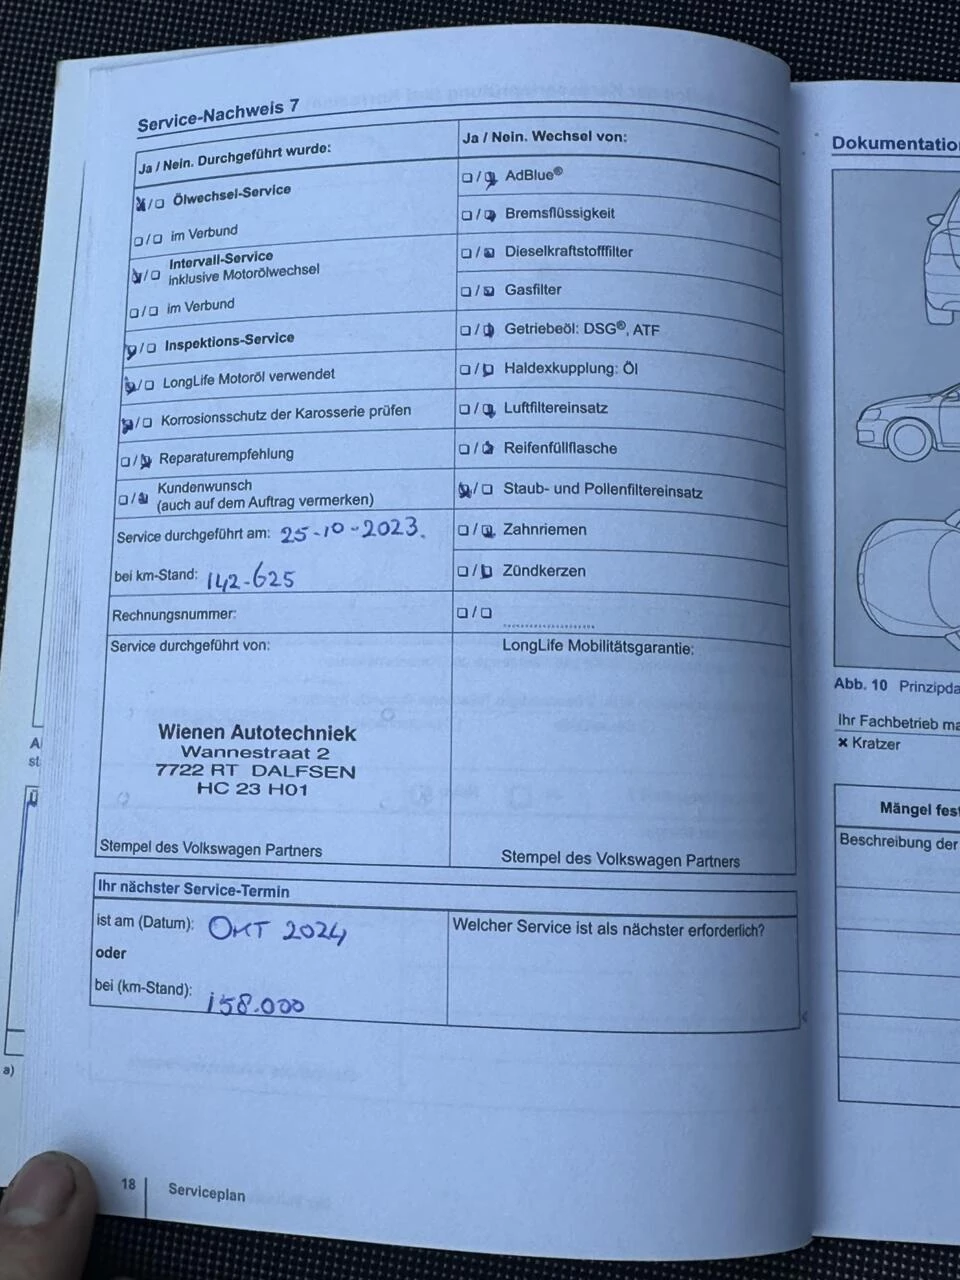 Service-Nachweis 7
Ja / Nein. Durchgeführt wurde:
☒/☐ Ölwechsel-Service
☐/☐ im Verbund
☒/☐ Intervall-Service
inklusive Motorölwechsel
☐/☐ im Verbund
☒/☐ Inspektions-Service
☒/☐ LongLife Motoröl verwendet
☒/☐ Korrosionsschutz der Karosserie prüfen
☐/☒ Reparaturempfehlung
☐/☒ Kundenwunsch
(auch auf dem Auftrag vermerken)
Service durchgeführt am: 25-10-2023.
bei km-Stand: 142-625
Rechnungsnummer:
Service durchgeführt von:
Wienen Autotechniek
Wannestraat 2
7722 RT DALFSEN
HC 23 H01
Stempel des Volkswagen Partners
Ja / Nein. Wechsel von:
☐/☒ AdBlue®
☐/☒ Bremsflüssigkeit
☐/☒ Dieselkraftstofffilter
☐/☒ Gasfilter
☐/☒ Getriebeöl: DSG®, ATF
☐/☒ Haldexkupplung: Öl
☐/☒ Luftfiltereinsatz
☐/☒ Reifenfüllflasche
☒/☐ Staub- und Pollenfiltereinsatz
☐/☒ Zahnriemen
☐/☒ Zündkerzen
☐/☐ ....................
LongLife Mobilitätsgarantie:
Stempel des Volkswagen Partners
Ihr nächster Service-Termin
ist am (Datum): OKT 2024
oder
bei (km-Stand): 158.000
Welcher Service ist als nächster erforderlich?
18 Serviceplan
a)
Dokumentatio
Abb. 10 Prinzipda
Ihr Fachbetrieb ma
✖ Kratzer
Mängel fest
Beschreibung der